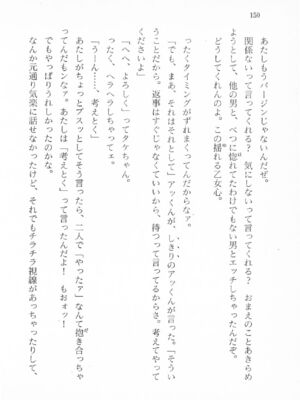 150
あたしもうバージンじゃないんだぜ。
関係ないって言ってくれる? 気にしないって言ってくれる? おまえのことあきらめ
ようとして、他の男と、べつに惚れてたわけでもない男とエッチしちゃったんだぞ。
どうしてくれんのよ。この揺れる乙女心。
ったくタイミングがずれまくってんだからなァ。
「でも、まあ、それはそれとして」アッくんが、しきりのアッくんが言った。「そうい
うことだから。返事はすぐじゃなくていいから、待つって言ってるからさ。考えてやって
くださいよ」
「へへ、よろしく」ってタケちゃん。
ったく、ヘラヘラしちゃってェ。
「うーん……、考えとく」
あたしがちょっとブスッとしてそう言ったら、二人で「やったァ」なんて抱き合っちゃ
ってんだもンなァ。あたしは「考えとく」って言ったんだよ! もおォッ!
でもやっぱりうれしかったのかな。
なんか元通り気楽に話せなかったけど、それでもチラチラ視線があっちゃったりして、